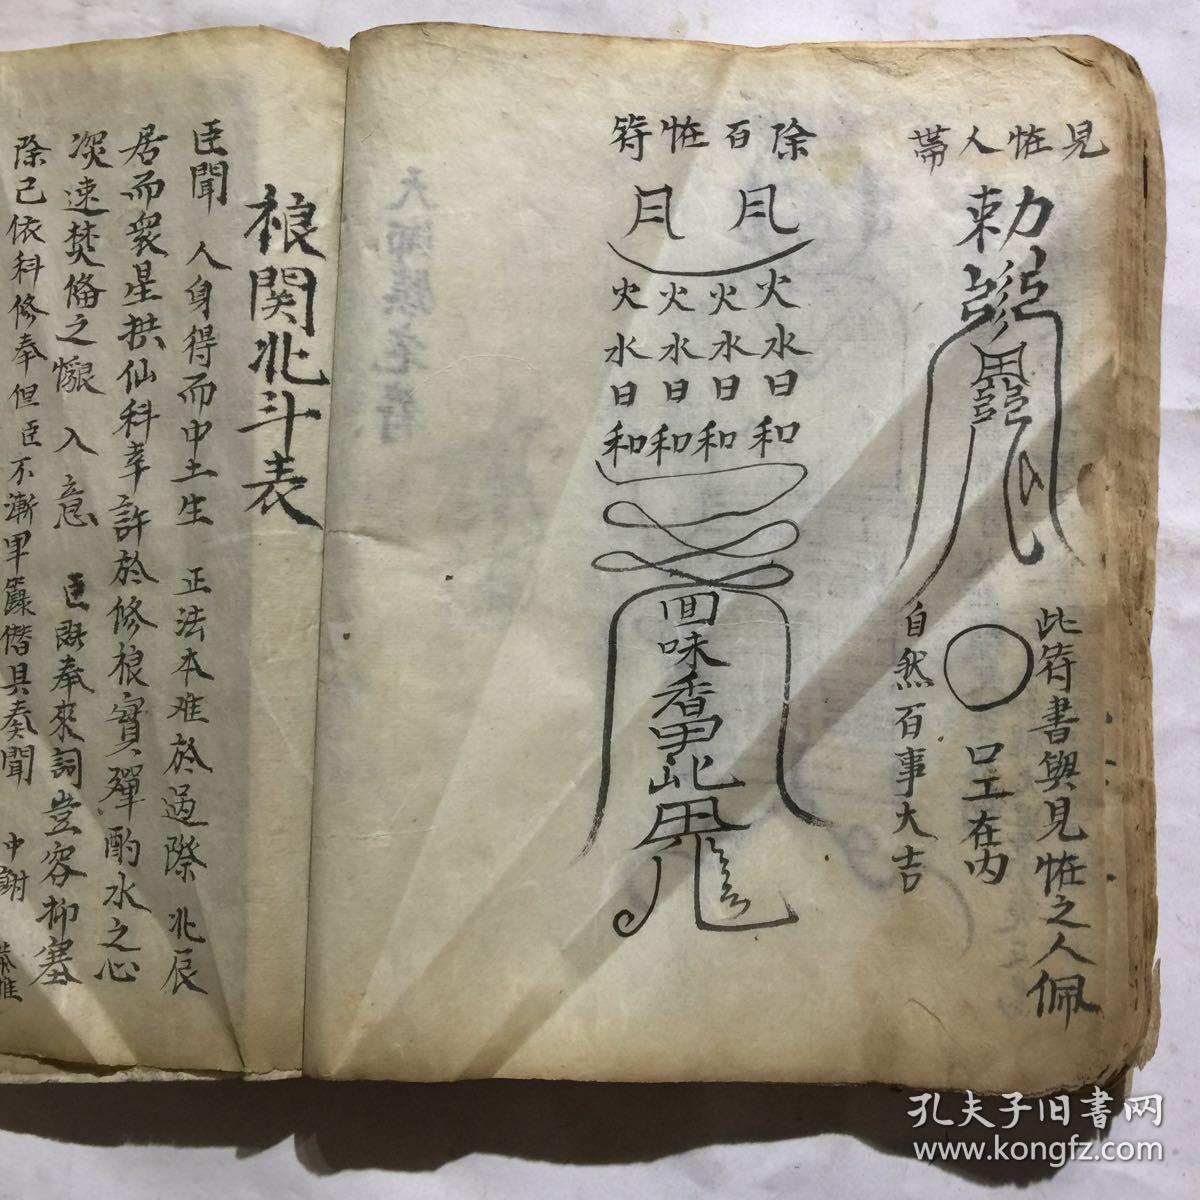 見恠人帶
勅
此符書與見恠之人佩
口工在内
自然百事大吉
除百恠符
月 月
火水日和
火水日和
火水日和
火水日和
回味香
此
禳関北斗表
臣聞 人身得而中土生 正法本难於遇際 北辰
居而衆星拱仙科幸許於修禳寳殫酌水之心
速焚脩之懇 入意 臣既奉來詞豈容抑塞
除已依科修奉但臣不漸卑 僭具奏聞 中謝
孔夫子旧書网
www.kongfz.com